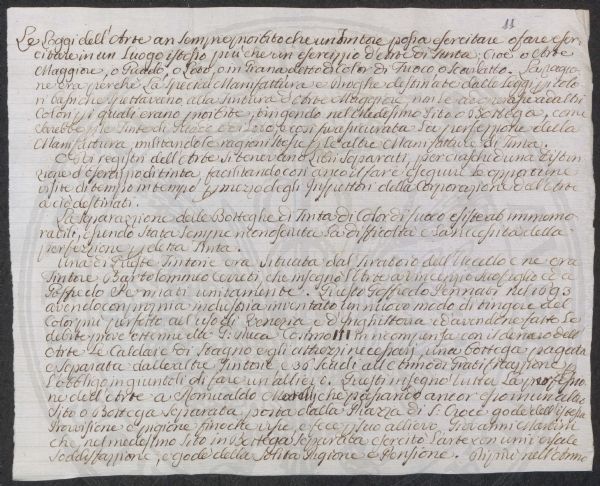 11
Le Leggi dell'Arte an sempre portito che un Tintore possa esercitare o fare eser
citare in un Luogo istesso più che un esercizio d'Arte di Tinta, Cioè o d'Arte
Maggiore, o Guado, o Loto, o in Grana detto di Color di Fuoco o Scarlatto. La ragio
ne era perche La Special Manifattura e Droghe destinate dalle Leggi p il solo
che spettavano alla Tintura d'Arte Maggiore, non le ad altri
Colori p i quali erano, tingendo nel medesimo Sito o Bottega, come
sarebbe p le Tinte di Guado e di Loto, e così assicurata La perfezione della
Manifattura, militando le ragioni stesse p le altre Manifatture di Tinta.
Ed i registri dell'Arte si tenevano Libri Separati, per ciascheduna distin
zione d'esercizio di tinta, facilitando con ancò il fare eseguire le opportune
visite di tempo in tempo p mezzo degli Inspettori della Corporazione dall'Arte
a ciò destinati.
La Separazione delle Botteghe di Tinta di Color di fuoco esiste ab immemo
rabili, essendo stata sempre riconosciuta La difficoltà e La necessità della
perfezione p detta Tinta.
Una di queste Tintorie era situata dal Tiratoio dell'Uccello e ne era
Tintore Bartolommeo Cerreti, che insegnò l'Arte a Vincenzio suo figlio ed a
Goffredo Permiati unitamente. Questo Goffredo Pennati nel 1693
avendo con propria industria inventato un nuovo modo di tingere del
Color più perfetto all'uso di Venezia e d'Inghilterra ed avendone fatte Le
debite prove ottenne dal G. Duca Cosimo III in ricompensa con il denaro dell'
Arte Le Caldaie di Stagno e gli attrezzi necessari, una bottega pagata
e Separata dalle altre Tintorie e 30 Scudi all'Anno di Gratificazione
L'obbligo ingiuntoli di fare un allievo. Questi insegnò tutta La profession
ne dell'Arte a Romualdo che passando ancor esso in un altro
Sito o Bottega Separata, posta dalla Piazza di S. Croce godè dell'istessa
Provvisione e pigione finochè visse, e fece p suo allievo Giovanni Mantini
che nel medesimo Sito in Bottega Separata esercitò L'arte con universale
Soddisfazzione, e godè della solita Pigione e Pensione. nell'Anno